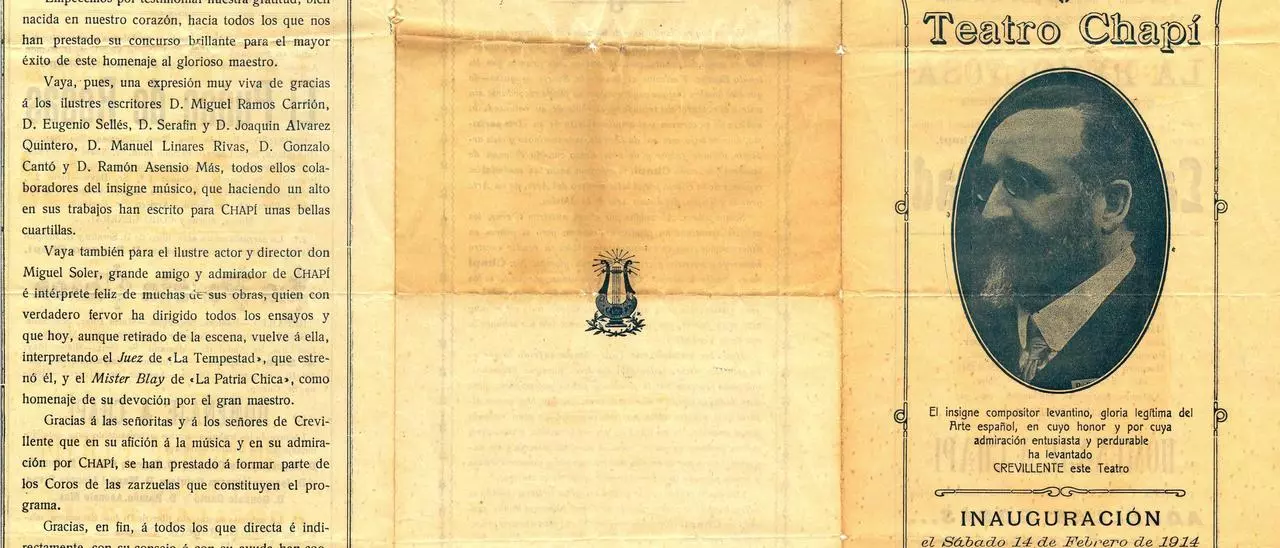 Empecemos por testimoniar nuestra gratitud, bien
nacida en nuestro corazón, hacia todos los que nos
han prestado su concurso brillante para el mayor
éxito de este homenaje al glorioso maestro.
Vaya, pues, una expresión muy viva de gracias
á los ilustres escritores D. Miguel Ramos Carrión,
D. Eugenio Sellés, D. Serafin y D. Joaquin Alvarez
Quintero, D. Manuel Linares Rivas, D. Gonzalo
Cantó y D. Ramón Asensio Más, todos ellos cola-
boradores del insigne músico, que haciendo un alto
en sus trabajos han escrito para CHAPÍ unas bellas
cuartillas.
Vaya también para el ilustre actor y director don
Miguel Soler, grande amigo y admirador de CHAPÍ
é intérprete feliz de muchas de sus obras, quien con
verdadero fervor ha dirigido todos los ensayos y
que hoy, aunque retirado de la escena, vuelve á ella,
interpretando el Juez de «La Tempestad», que estre-
nó él, y el Mister Blay de «La Patria Chica», como
homenaje de su devoción por el gran maestro.
Gracias á las señoritas y á los señores de Crevi-
llente que en su afición á la música y en su admira-
ción por CHAPÍ, se han prestado á formar parte de
los Coros de las zarzuelas que constituyen el pro-
grama.
Gracias, en fin, á todos los que directa é indi-
rectamente, con su consejo ó con su ayuda han
Teatro Chapí
El insigne compositor levantino, gloria legítima del
Arte español, en cuyo honor y por cuya
admiración entusiasta y perdurable
ha levantado
CREVILLENTE este Teatro
INAUGURACIÓN
el Sábado 14 de Febrero de 1914